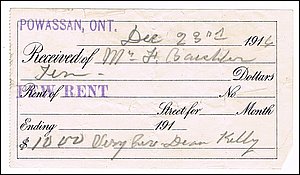 POWASSAN, ONT.
Dec 23rd 1916
Received of Mr F.
Ten Dollars
PEW RENT
Rent of No
Street for Month
Ending 191
$ 10.00 Very Rev Dean Kelly